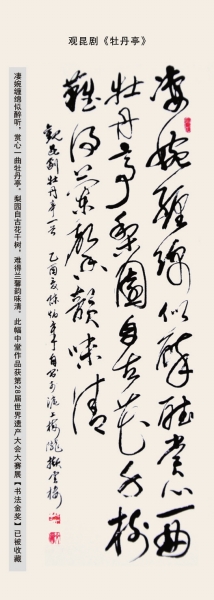 观昆剧《牡丹亭》
凄婉纏綿似醉聽赏心一曲
牡丹亭梨園自古花千樹
難得蘭馨韻味清
觀昆劇牡丹亭一首 乙酉
凄婉缠绵似醉听，赏心一曲牡丹亭。梨园自古花千树，难得兰馨韵味清。此幅中堂作品获第28届世界遗产大会大赛展【书法金奖】已被收藏